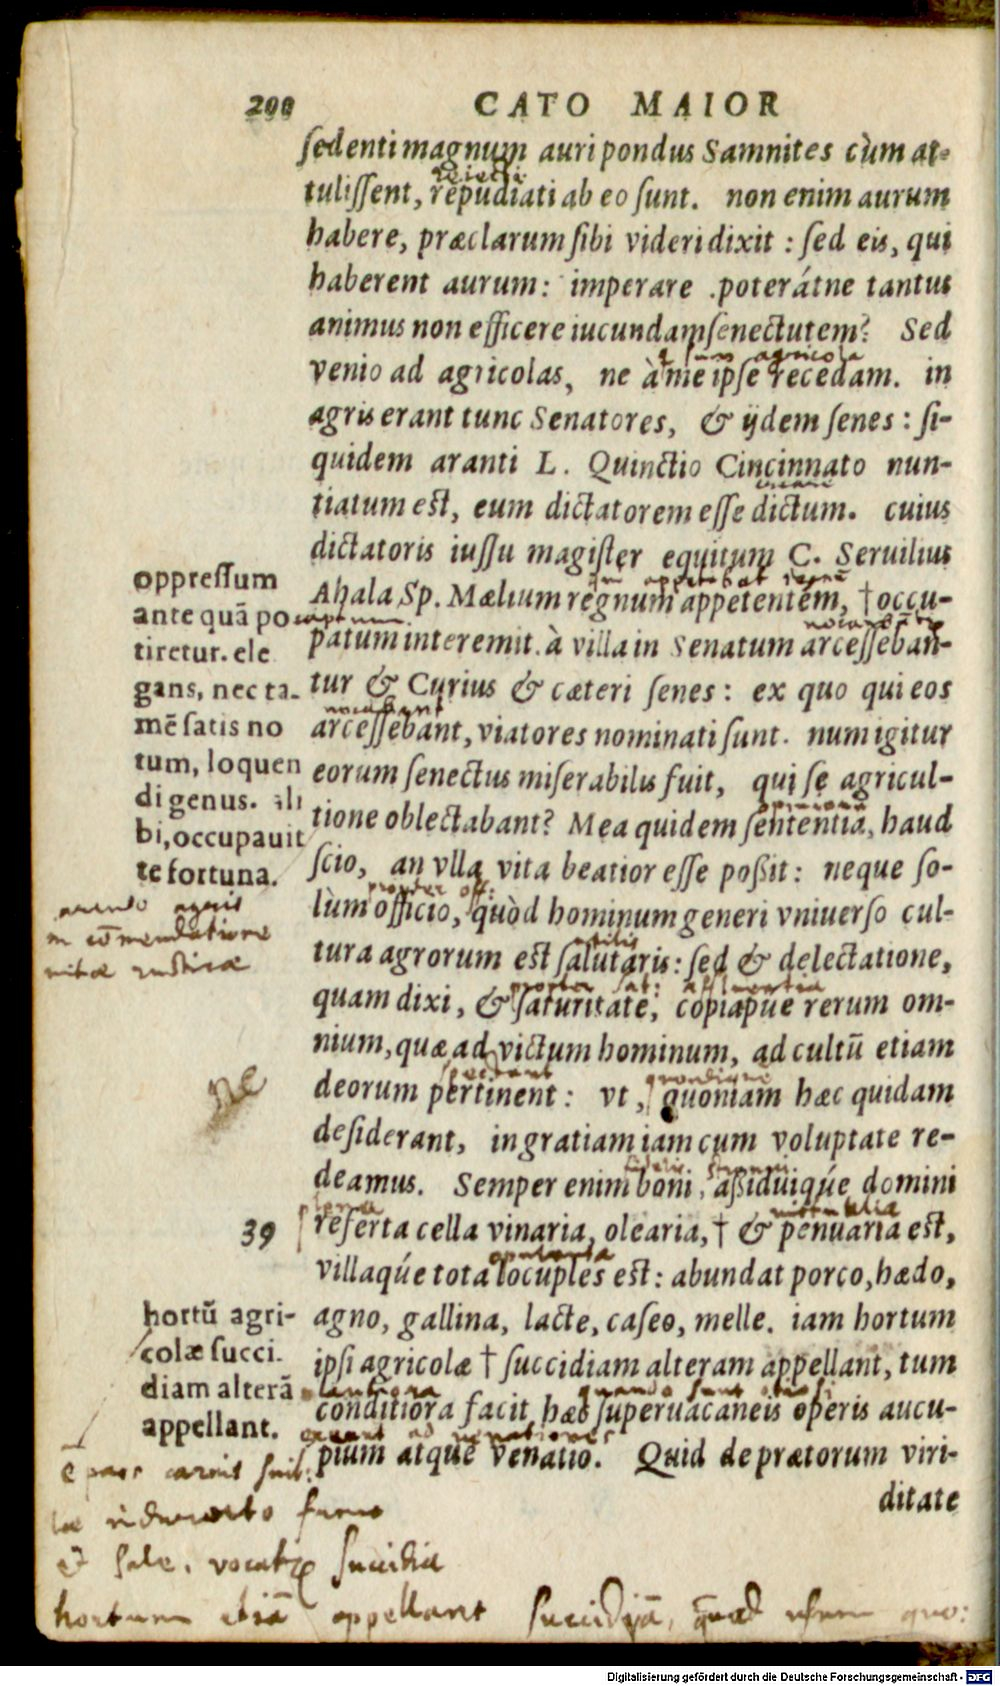 200 CATO MAIOR
sedenti magnum auri pondus Samnites cùm at-
reiecti
tulissent, repudiati ab eo sunt. non enim aurum
habere, præclarum sibi videri dixit : sed eis, qui
haberent aurum: imperare .poterátne tantus
animus non efficere iucundam senectutem? Sed
sum agricola
venio ad agricolas, ne à me ipse recedam. in
agris erant tunc Senatores, & ijdem senes : si-
quidem aranti L. Quinctio Cincinnato nun-
tiatum est, eum dictatorem esse dictum. cuius
dictatoris iussu magister equitum C. Seruilius
appetebat
Ahala Sp. Mælium regnum appetentem, † occu-
patum interemit. à villa in Senatum arcesseban-
tur & Curius & cæteri senes : ex quo qui eos
vocabant
arcessebant, viatores nominati sunt. num igitur
eorum senectus miserabilis fuit, qui se agricul-
opinione
tione oblectabant? Mea quidem sententia, haud
scio, an vlla vita beatior esse poßit : neque so-
propter off:
lùm officio, quòd hominum generi vniuerso cul-
utilis
tura agrorum est salutaris : sed & delectatione,
propter sat: affluentia
quam dixi, & saturitate, copiaque rerum om-
nium, quæ ad victum hominum, ad cultū etiam
spectant quandoqui
deorum pertinent : vt, quoniam hæc quidam
desiderant, in gratiam iam cum voluptate re-
deamus. Semper enim boni, aßiduiqúe domini
plena
39 referta cella vinaria, olearia, † & penuaria est,
opulenta
villaqúe tota locuples est : abundat porco, hædo,
agno, gallina, lacte, caseo, melle. iam hortum
ipsi agricolæ † succidiam alteram appellant, tum
lautiora quando sunt otiosi
conditiora facit hæc superuacaneis operis aucu-
pium atque venatio. Quid de prætorum viri-
ditate
oppressum
ante quā po
tiretur. ele
gans, nec ta-
mē satis no
tum, loquen
di genus. ali
bi, occupauit
te fortuna.
agris
in cōmendatione
vitæ rusticæ
hortū agri-
colæ succi.
diam alterā
appellant.
carnis
fumo
et sale, succidia
hortum etiā appellant succidiā,
Digitalisierung gefördert durch die Deutsche Forschungsgemeinschaft - DFG